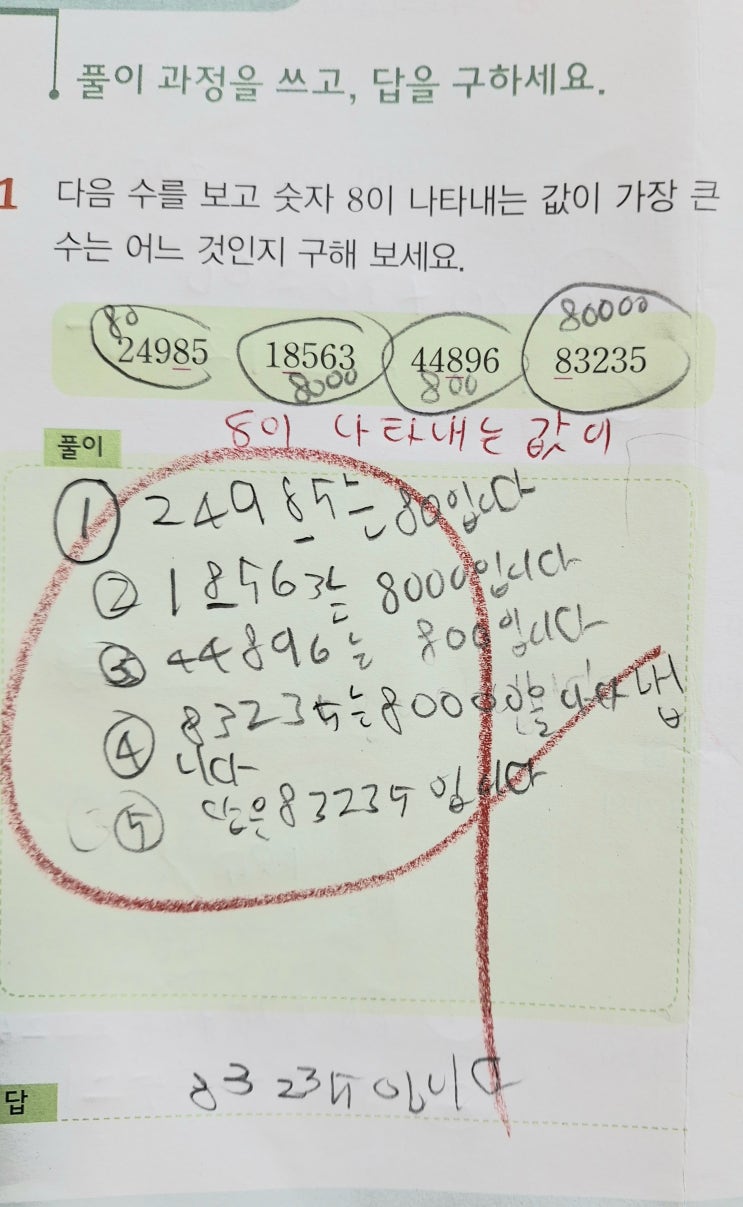 풀이 과정을 쓰고, 답을 구하세요.
1 다음 수를 보고 숫자 8이 나타내는 값이 가장 큰
수는 어느 것인지 구해 보세요.
80 80000
24985 18563 44896 83235
8000 800
8이 나타내는 값이
풀이
① 24985는 80입니다
② 18563는 8000입니다
③ 44896는 800입니다
④ 83235는 80000을
니다
⑤ 답은 83235 입니다
답 83235 입니다